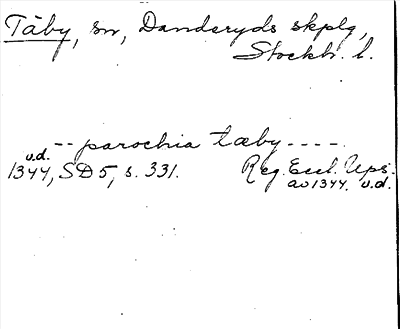 Täby, sn, Danderyds skplg,
Stockh. l.
-- parochia tæby ----
u.d.
1344, SD 5, s. 331. Reg. Eccl. Ups.
av 1344. u.d.